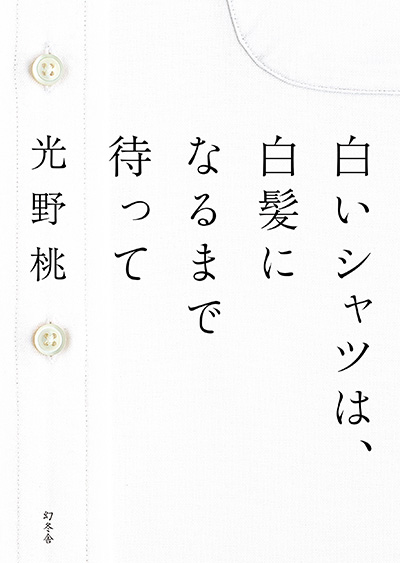 白いシャツは、
白髪に
なるまで
待って
光野桃
幻冬舎